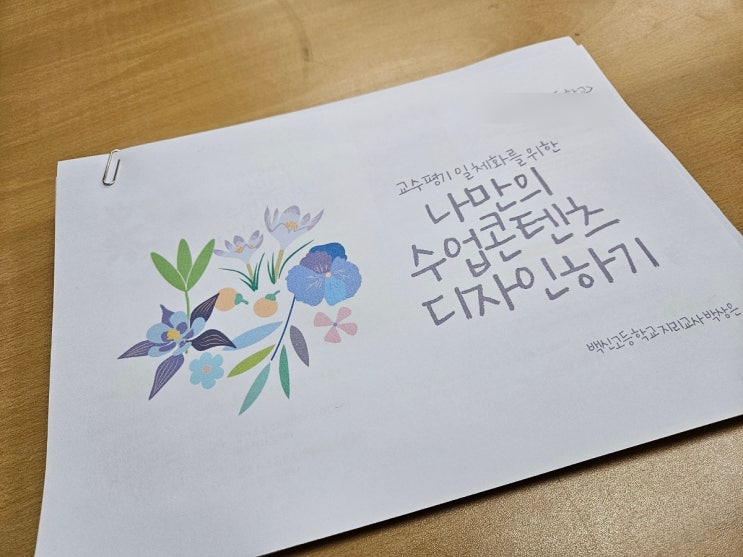 교수평기 일체화를 위한
나만의
수업콘텐츠
디자인하기
백신고등학교 지리교사 박상은